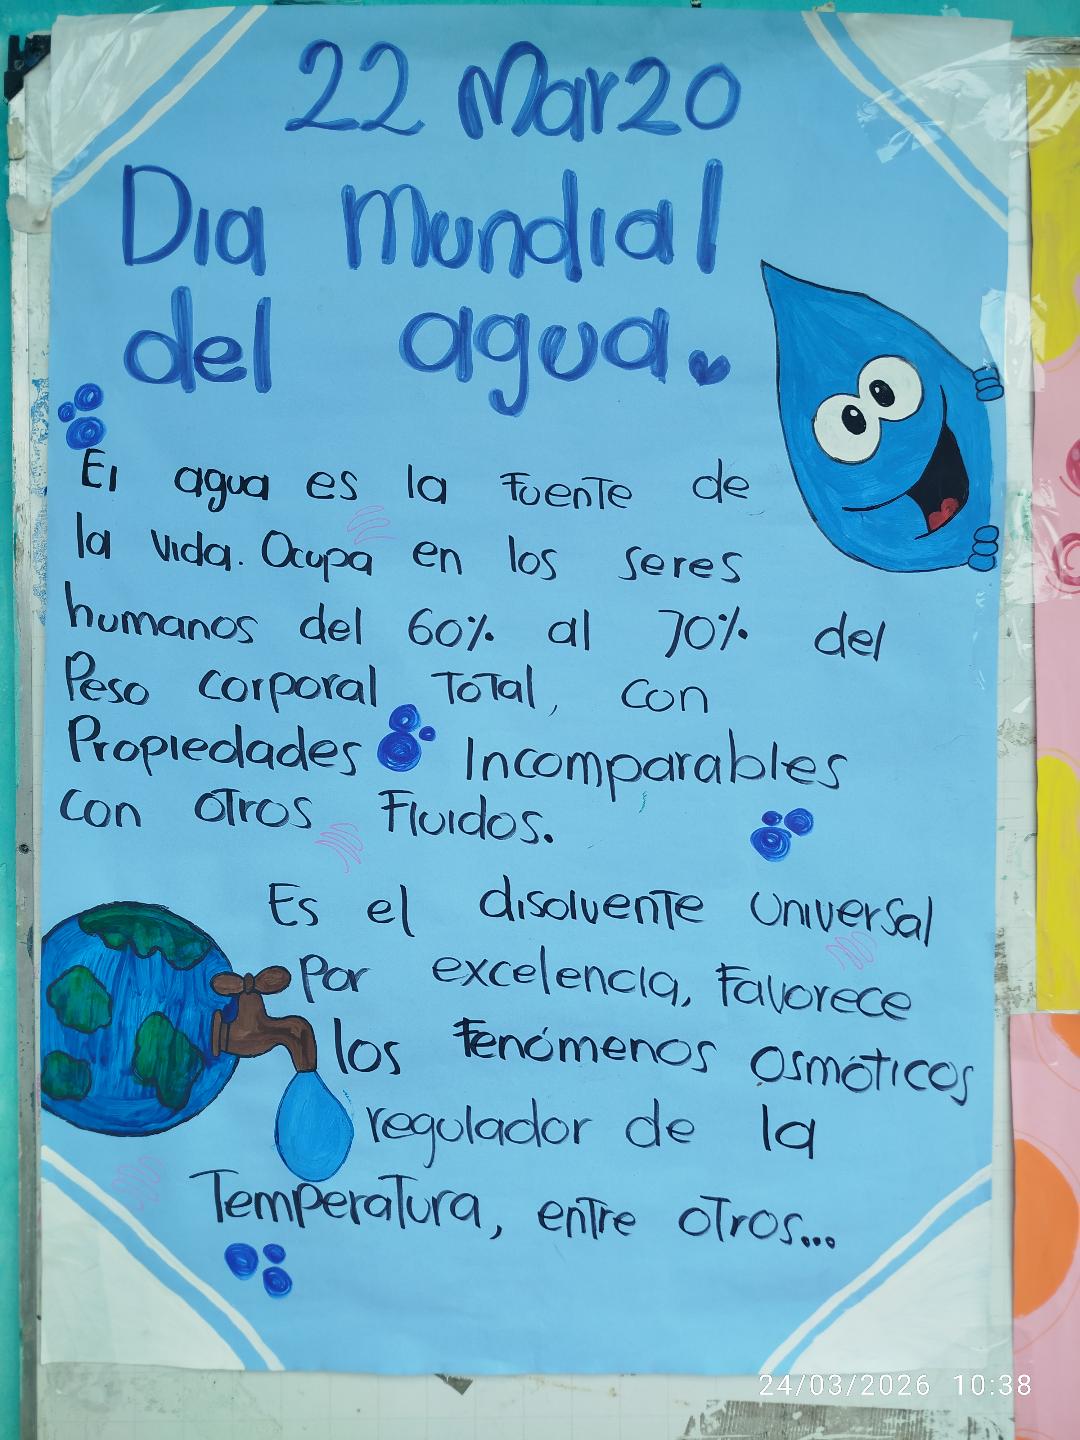 22 Marzo
Dia Mundial
del agua.
El agua es la Fuente de
la vida. Ocupa en los seres
humanos del 60% al 70% del
Peso corporal Total, con
Propiedades Incomparables
con otros Fluidos.
Es el disolvente universal
Por excelencia, Favorece
los Fenómenos osmóticos
regulador de la
Temperatura, entre otros...
24/03/2026 10:38